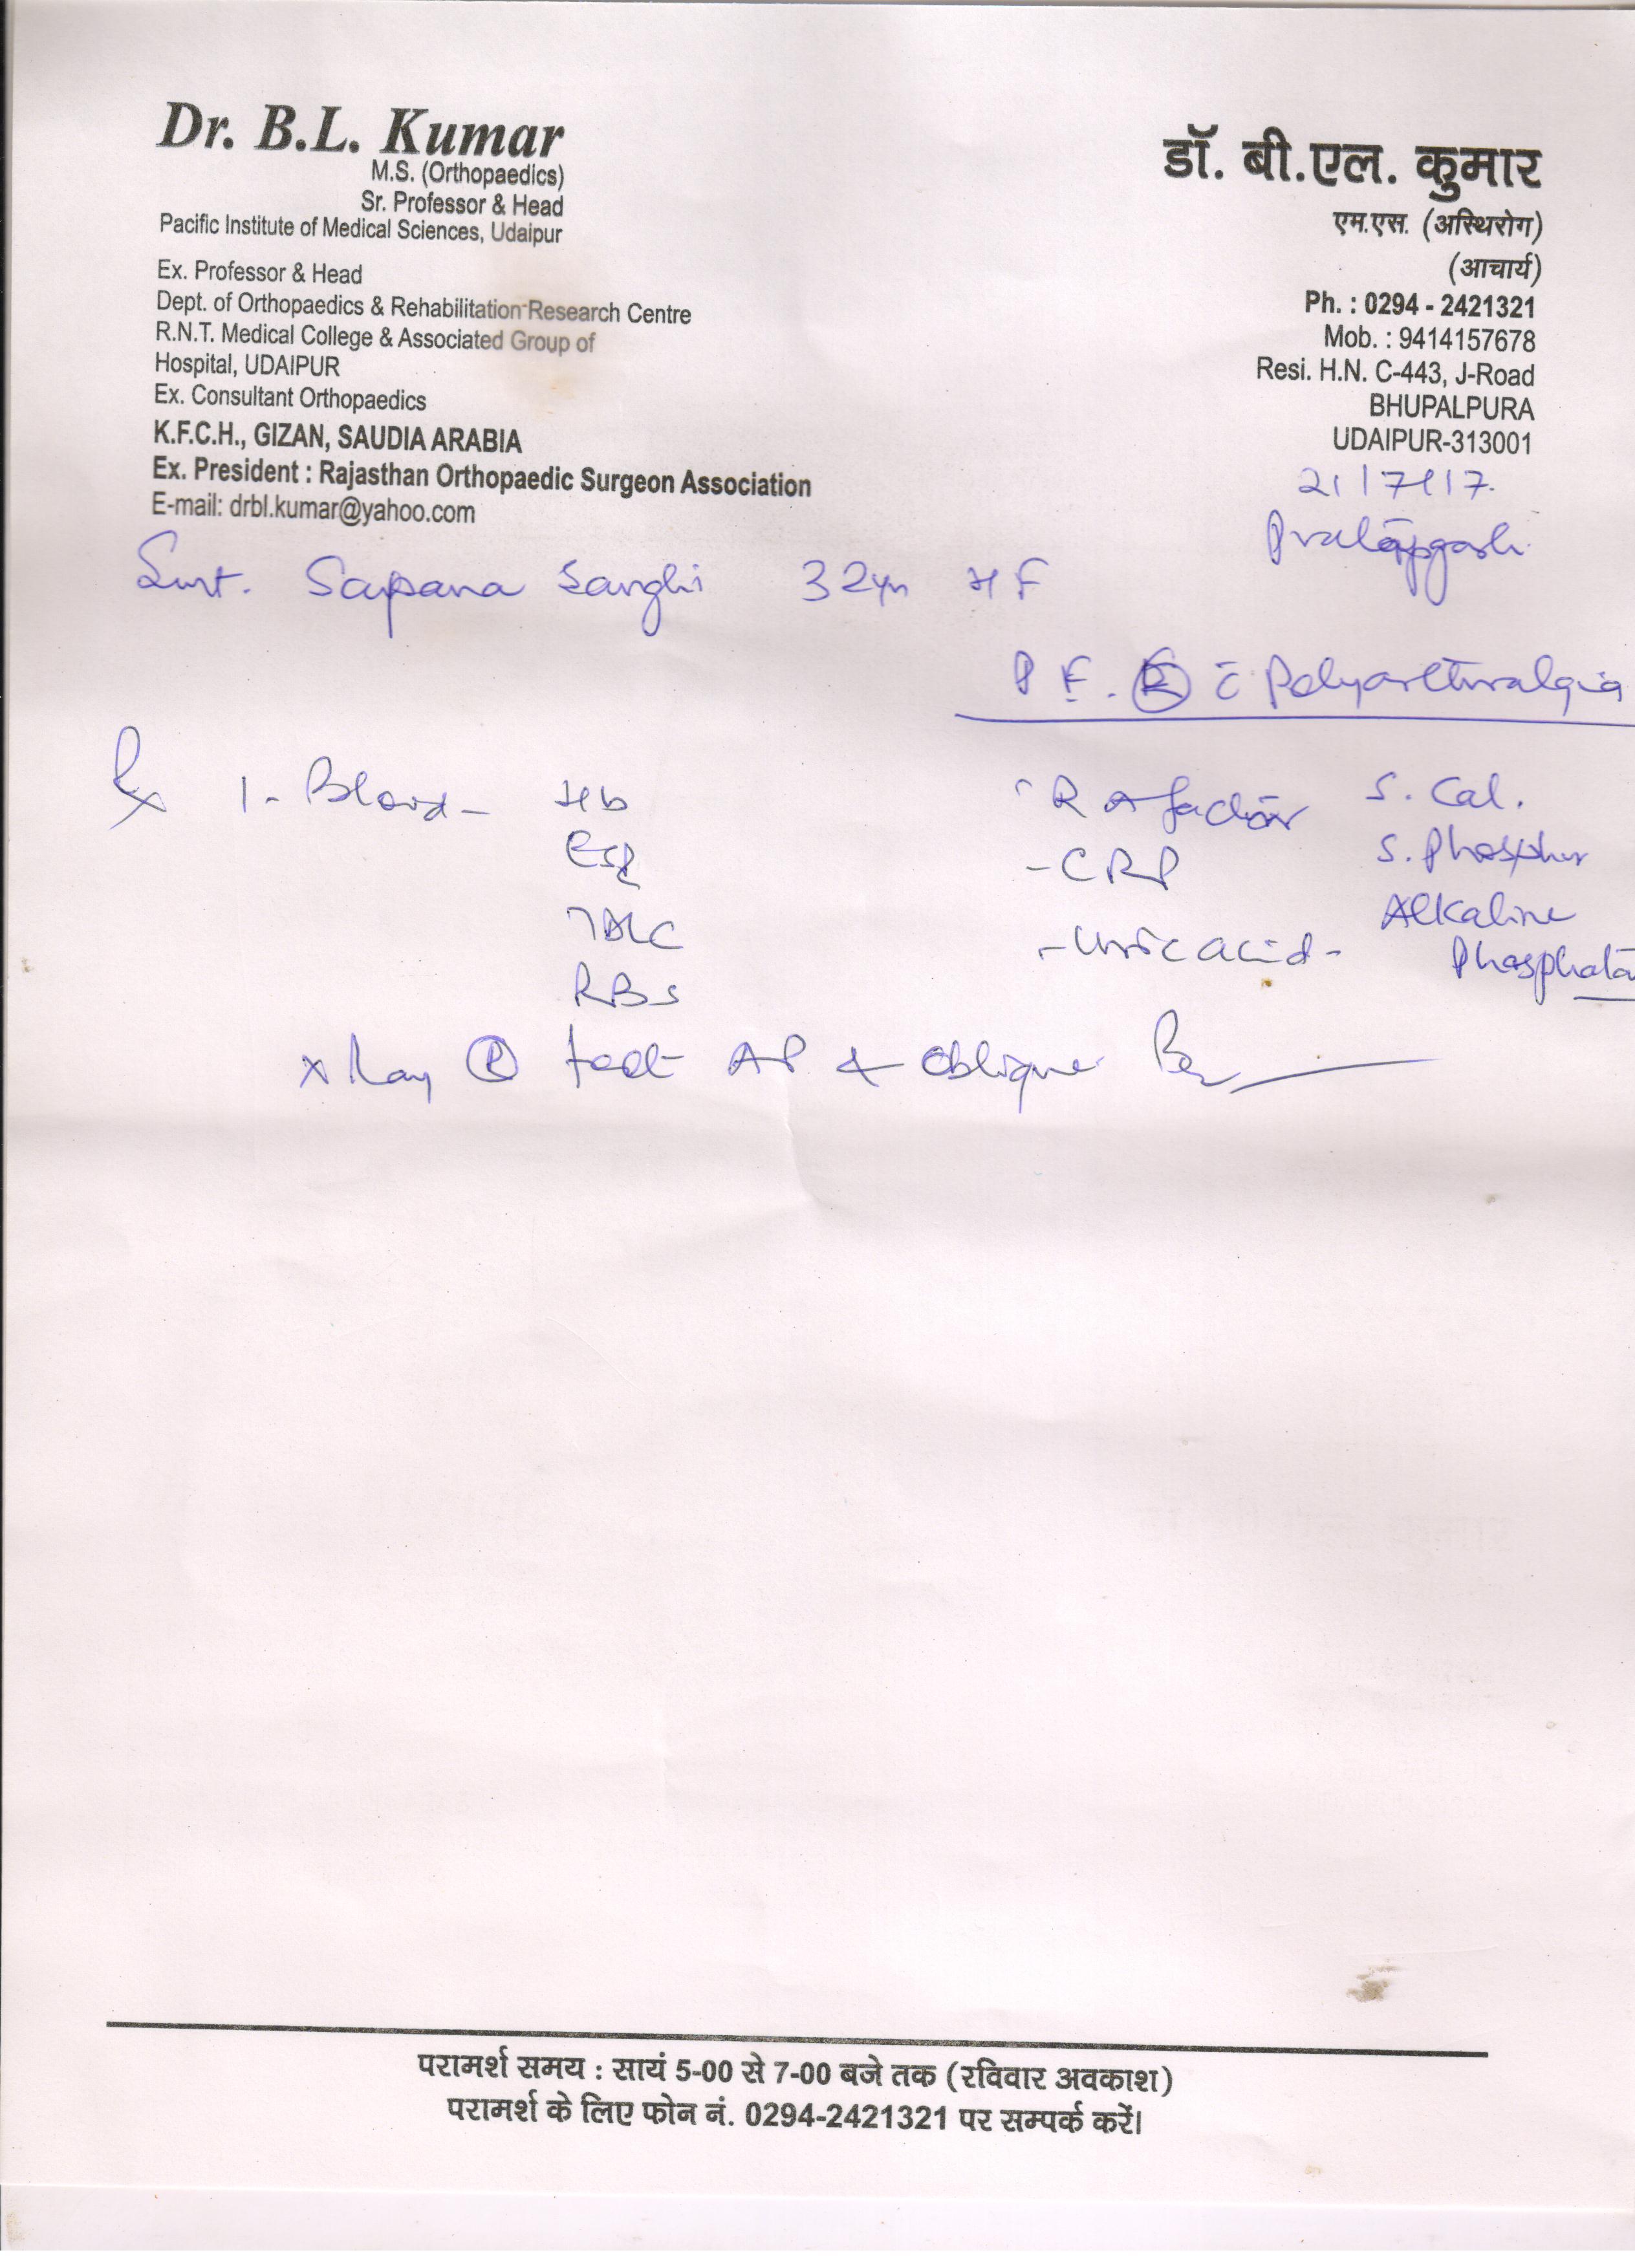 Dr. B.L. Kumar
M.S. (Orthopaedics)
Sr. Professor & Head
Pacific Institute of Medical Sciences, Udaipur
Ex. Professor & Head
Dept. of Orthopaedics & Rehabilitation Research Centre
R.N.T. Medical College & Associated Group of
Hospital, UDAIPUR
Ex. Consultant Orthopaedics
K.F.C.H., GIZAN, SAUDIA ARABIA
Ex. President : Rajasthan Orthopaedic Surgeon Association
E-mail: drbl.kumar@yahoo.com
डॉ. बी.एल. कुमार
एम.एस. (अस्थिरोग)
(आचार्य)
Ph. : 0294 - 2421321
Mob. : 9414157678
Resi. H.N. C-443, J-Road
BHUPALPURA
UDAIPUR-313001
21/7/17.
Pratapgarh.
Smt. Sapana Sanghi 32yr HF
P.F. c̄ Polyarthralgia
Rx 1- Blood- Hb - RA factor S. Cal.
ESR - CRP S. Phosphor
TDLC - Uric acid - Alkaline
RBS Phosphata
X Ray foot AP & oblique
परामर्श समय : सायं 5-00 से 7-00 बजे तक (रविवार अवकाश)
परामर्श के लिए फोन नं. 0294-2421321 पर सम्पर्क करें।